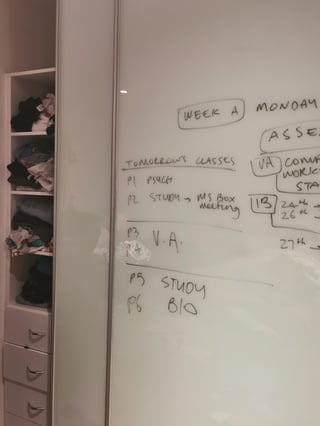 WEEK A MONDAY
ASSE
TOMORROWS CLASSES
P1 PSYCH
P2 STUDY → MS BOX meeting
P3
P4 V.A.
P5 STUDY
P6 BIO
VA
WORK
STA
IB 24th →
26th →
27th →